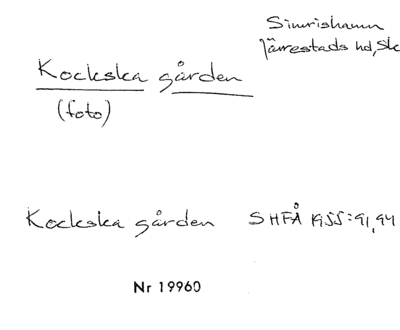 Simrishamn
Järrestads hd, Sk
Kockska gården
(foto)
Kockska gården SHFÅ 1955:91,94
Nr 19960